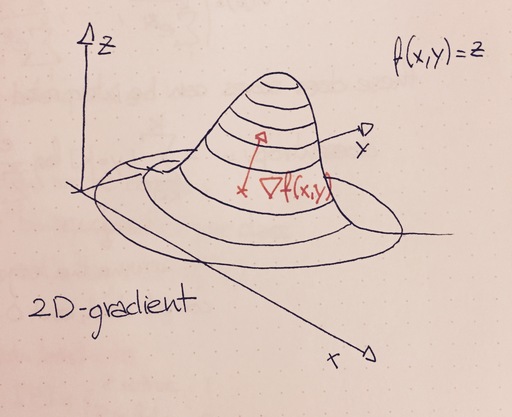 z
f(x,y)=z
y
∇f(x,y)
2D-gradient
x